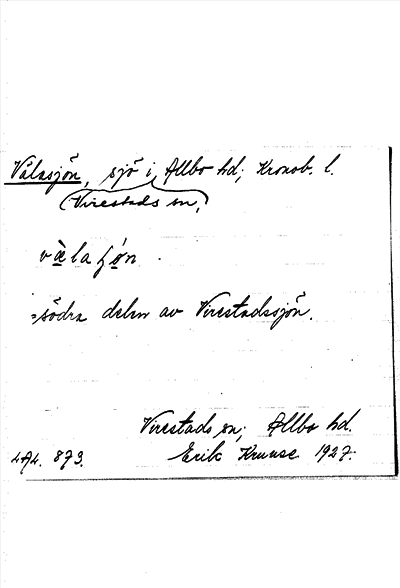 Välasjön, sjö i Allbo hd; Kronob. l.
(Virestads sn,)
vä̀la ʃǿn.
=södra delen av Virestadssjön.
Virestads sn; Allbo hd.
4A4. 873. Erik Kruuse 1927.